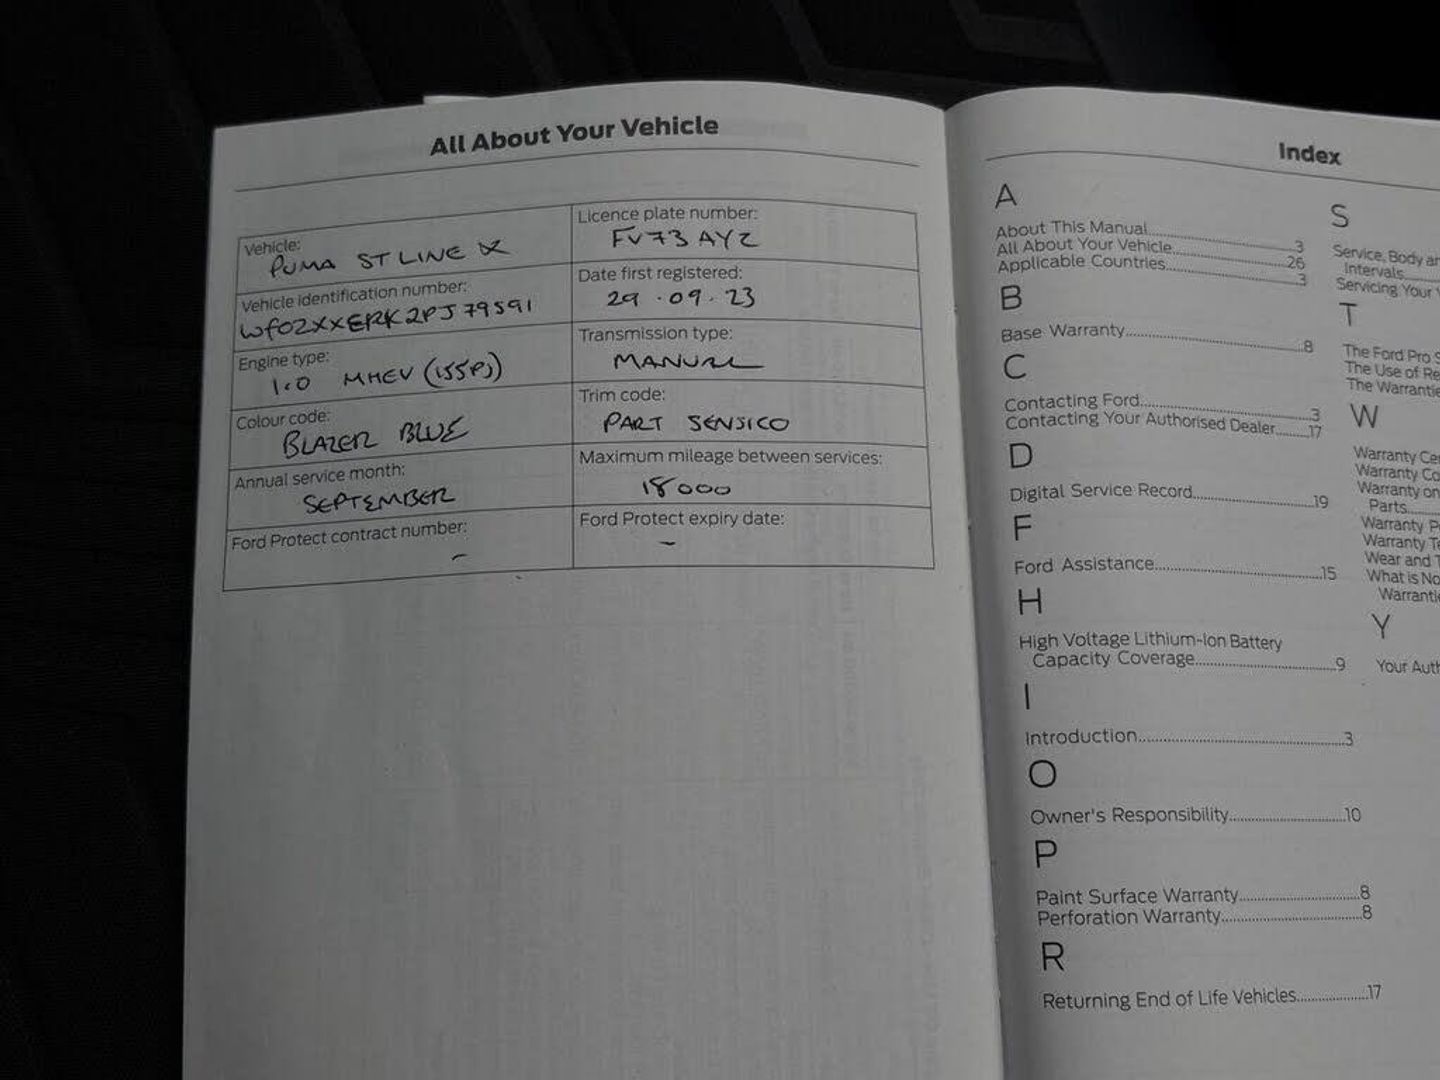 All About Your Vehicle
Vehicle:
PUMA ST LINE X
Licence plate number:
FV73 AYZ
Vehicle identification number:
WF02XXERK2PJ79591
Date first registered:
29 . 09 . 23
Engine type:
1.0 MHEV (155PS)
Transmission type:
MANUAL
Colour code:
BLAZER BLUE
Trim code:
PART SENSICO
Annual service month:
SEPTEMBER
Maximum mileage between services:
18000
Ford Protect contract number:
-
Ford Protect expiry date:
-
Index
A
About This Manual..........3
All About Your Vehicle..........26
Applicable Countries..........3
B
Base Warranty..........8
C
Contacting Ford..........3
Contacting Your Authorised Dealer..........17
D
Digital Service Record..........19
F
Ford Assistance..........15
H
High Voltage Lithium-Ion Battery
Capacity Coverage..........9
I
Introduction..........3
O
Owner's Responsibility..........10
P
Paint Surface Warranty..........8
Perforation Warranty..........8
R
Returning End of Life Vehicles..........17
S
Service, Body
Intervals
Servicing Your
T
The Ford Pro
The Use of
The
W
Warranty
Warranty
Warranty on
Parts
Warranty
Warranty
Wear and
What is
Y
Your